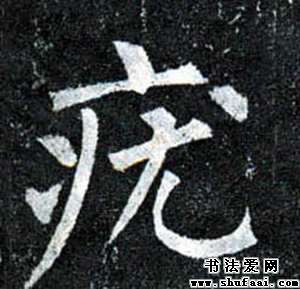 疣
书法爱网
www.shufaai.com